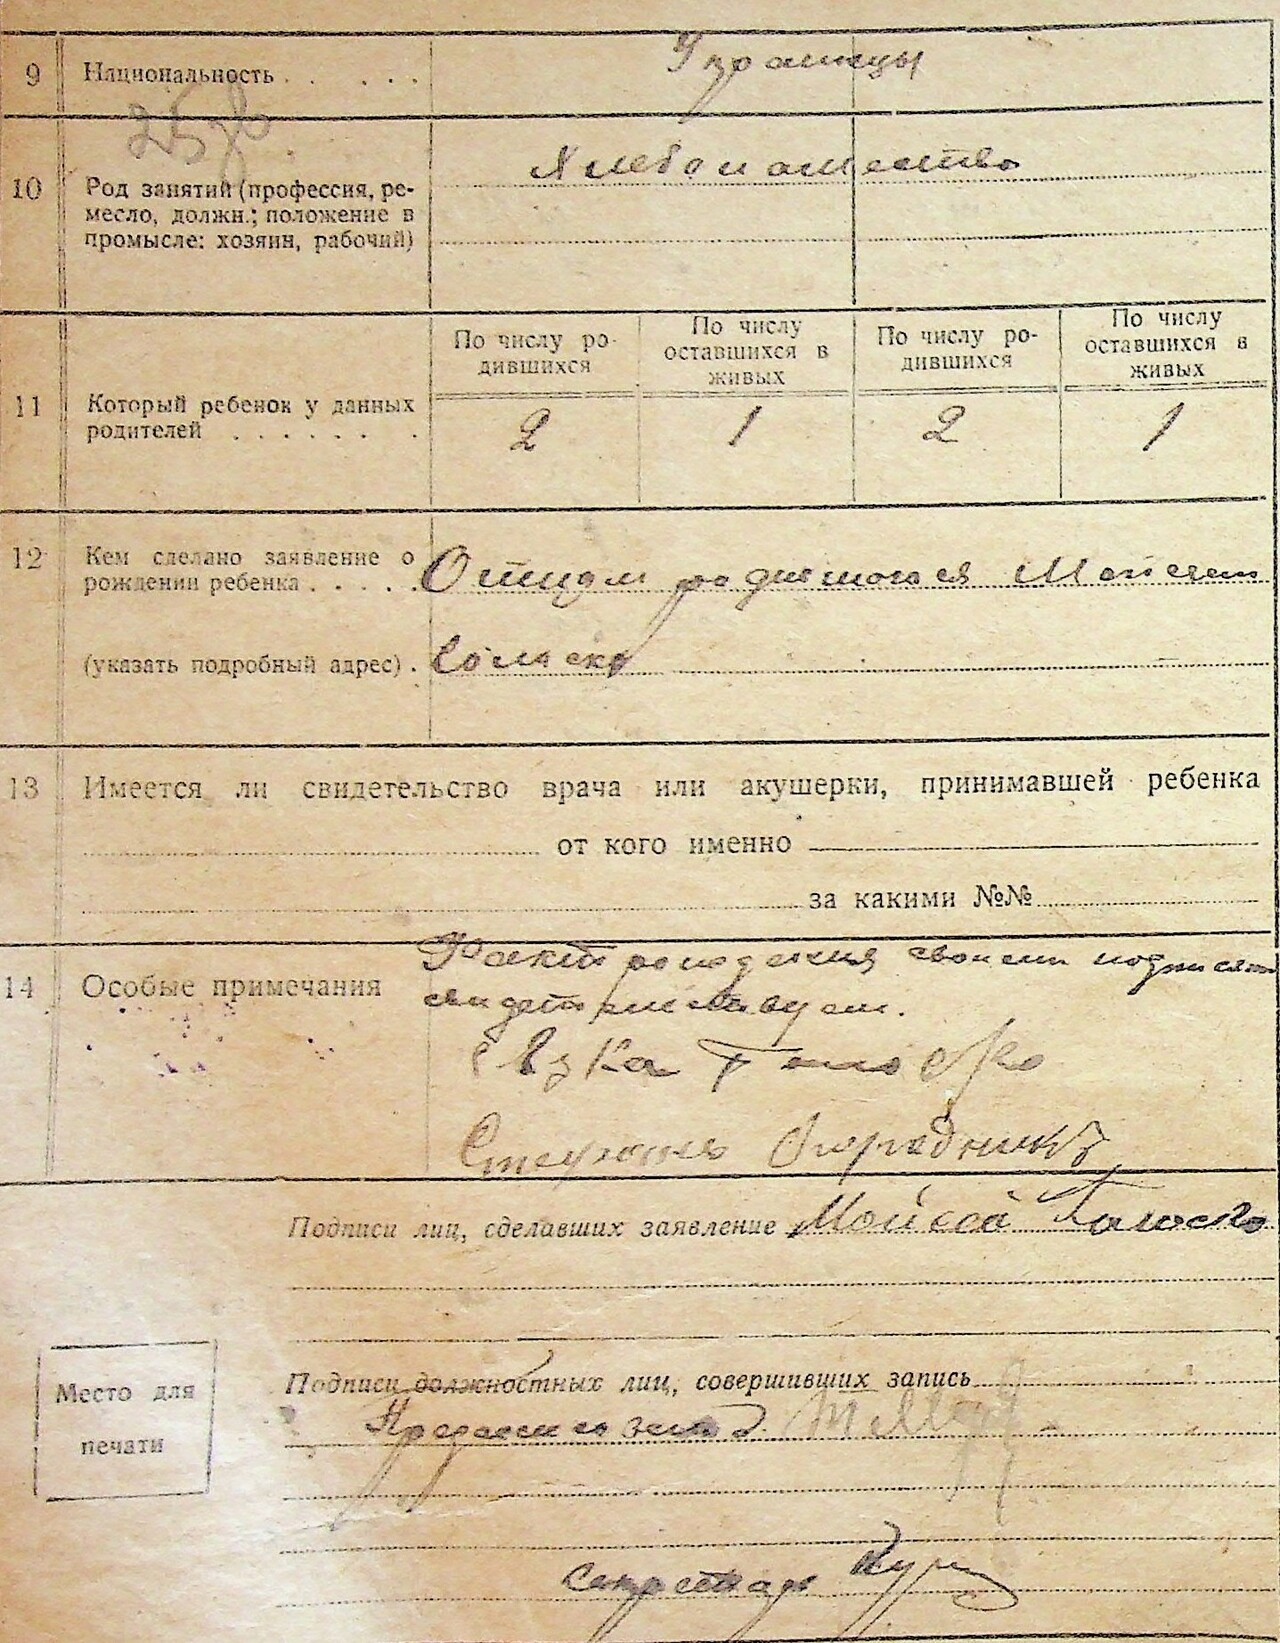 9 Национальность . . . . . Украинцы
10 Род занятий (профессия, ре-
месло, должн.; положение в
промысле: хозяин, рабочий)
Хлебопашество
11 Который ребенок у данных
родителей . . . . . . .
По числу ро-
дившихся
По числу
оставшихся в
живых
По числу ро-
дившихся
По числу
оставшихся в
живых
2 1 2 1
12 Кем сделано заявление о
рождении ребенка . . . . . Отцом родившогося Мойсеем
(указать подробный адрес) .
13 Имеется ли свидетельство врача или акушерки, принимавшей ребенка
от кого именно
за какими №№
14 Особые примечания
Факт рождения своеми подписями
свидетельствуем.
Стефанъ Огородникъ
Подписи лиц, сделавших заявление Мойсей
Место для
печати
Подписи должностных лиц, совершивших запись
Секретарь